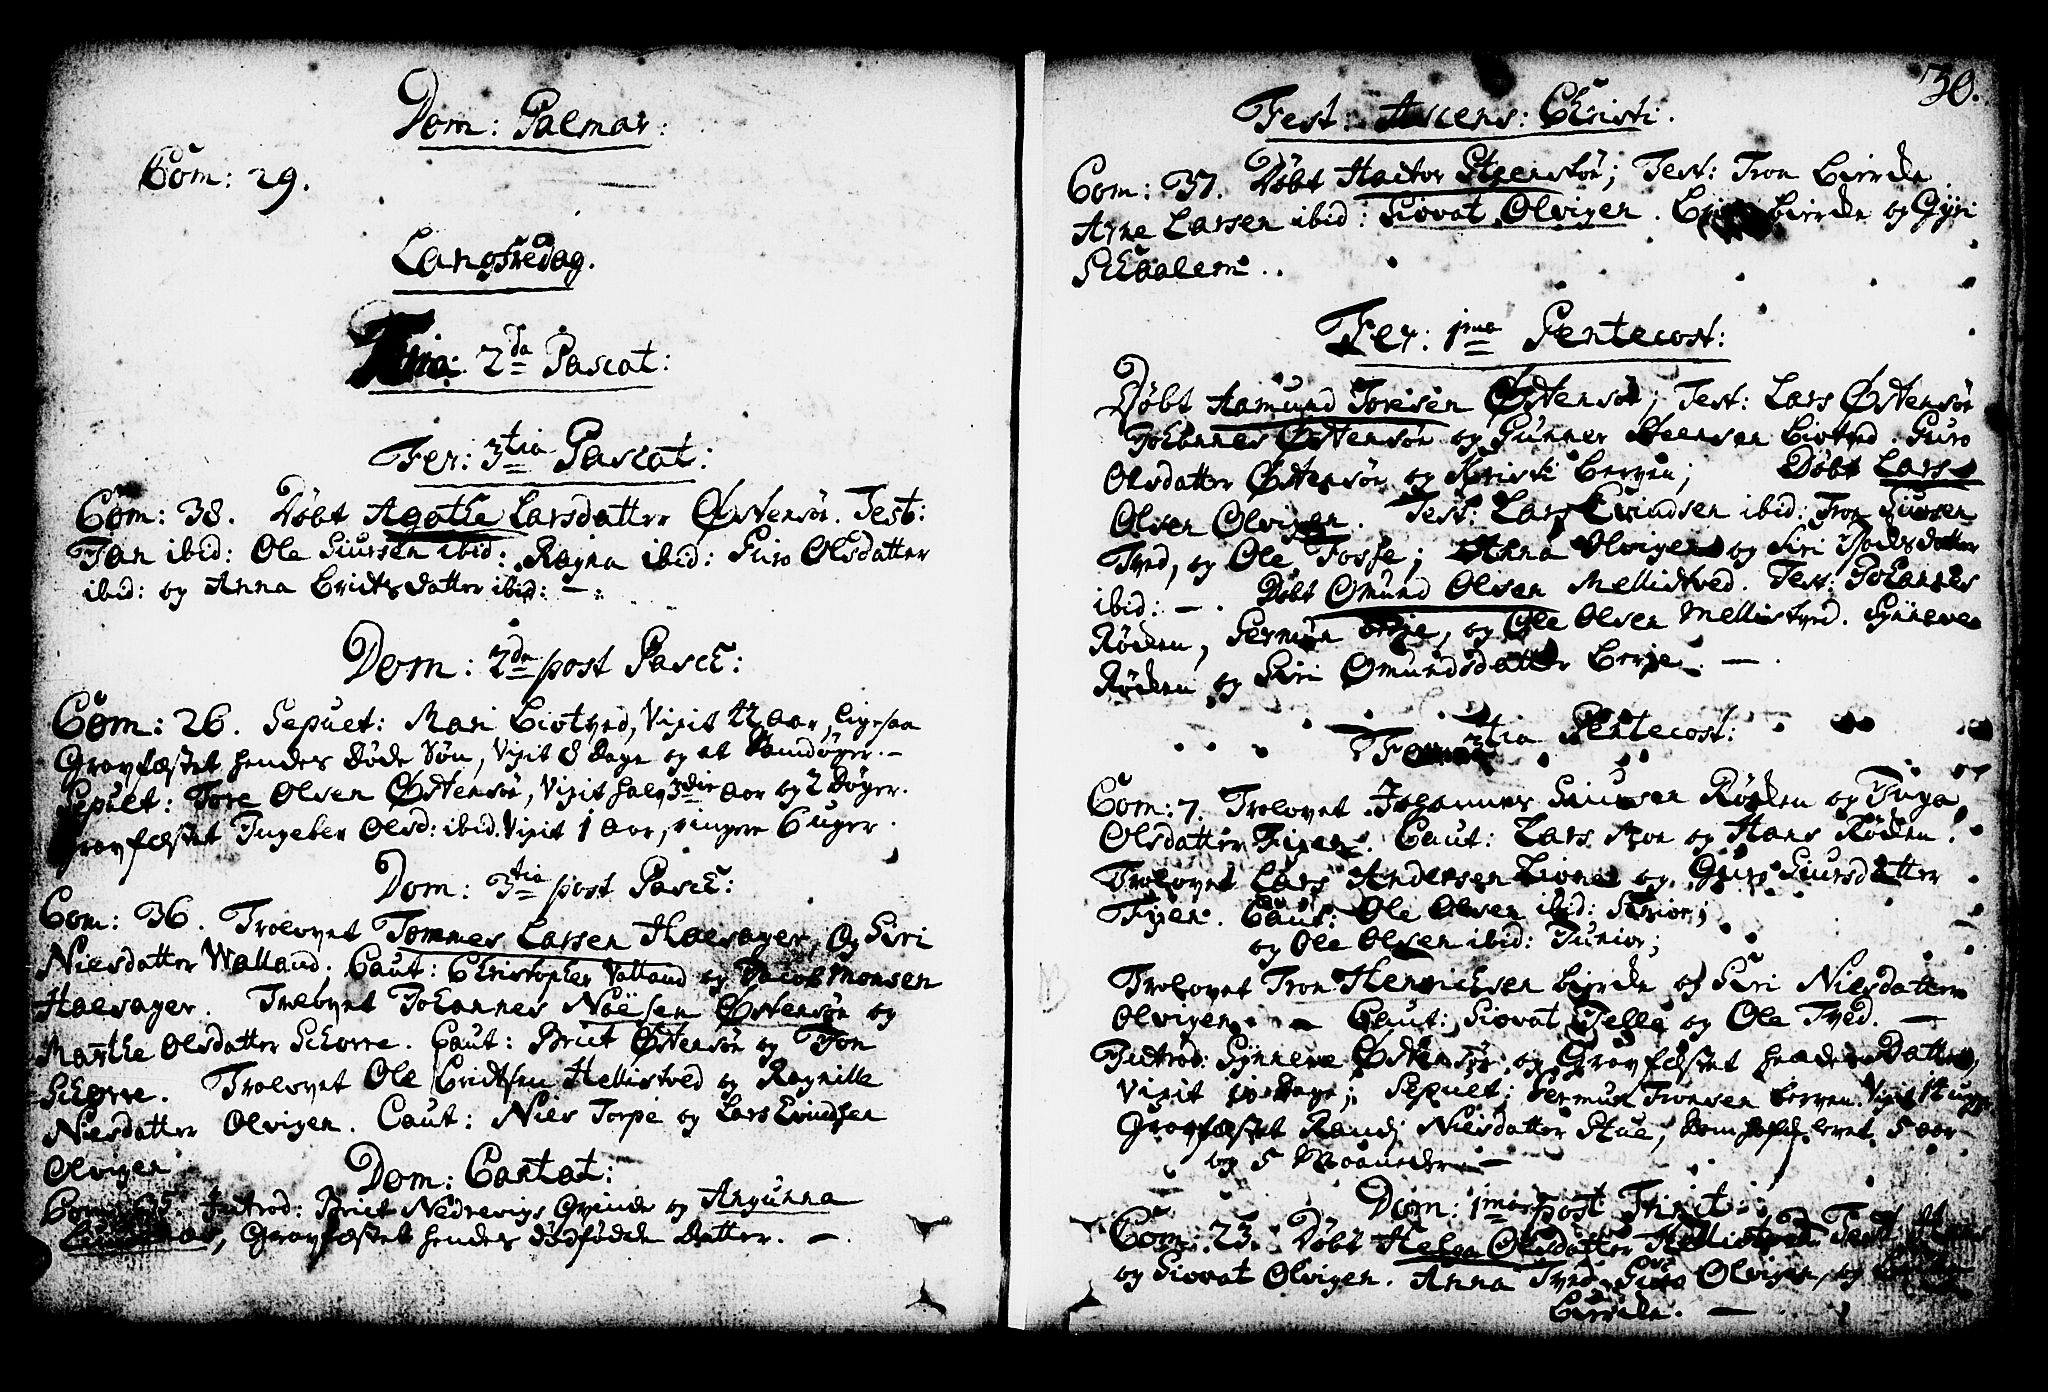 Dom: Palmar:
Com: 29.
Langfredag.
Feria: 2da Pascat:
Fer: 3tia Pascat:
Com: 38. Døbt Agathe Larsdatter Østensøe. Test:
Jan ibid: Ole Siursen ibid: Ragna ibid: Guro Olsdatter
ibid: og Anna Eridtsdatter ibid: —
Dom: 2da post Pasch:
Com: 26. Sepult: Mari Liotved, Vixit 42 aar, ligesaa
Gravfæstet hendes Døde Søn, Vixit 8 Dage og et Samdøger. —
Sepult: Tore Olsen Østensøe, Vixit halv 3die Aar og 2 Døger.
Gravfæstet Ingeber Olsd: ibid. Vixit 1 Aar, ringere 6 uger.
Dom: 3tia post Pasch:
Com: 36. Trolovet Tommes Larsen Halsager, og Siri
Nielsdatter Walland. Caut: Christopher Valland og Jacob Monsen
Halsager. Trolovet Johannes Noësen Østensøe og
Marthe Olsdatter Schorre. Caut: Briet Østensøe og Jon
Schorre. Trolovet Ole Eridtsen Mellistved og Ragnille
Nielsdatter Olvigen. Caut: Niels Torpe og Lars Evindsen
Olvigen
Dom: Cantat:
Com: 65. Introd: Briet Nedrevigs Qvinde og Angunna
, Gravfæstet hendes dødfødde Datter. —
30.
Fest: Ascens: Christi.
Com: 37. Døbt Hactor Steenstøe; Test: Tron Birrde
Arne Larsen ibid: Siovat Olvigen. Birrde og Gyri
Schaalem..
Fer: 1ma Pentecost:
Døbt Aamund Toresen Østensøe; Test: Lars Østensøe
Johannes Østensøe og Gunner Steensen Liotved. Guro
Olsdatter Østensøe og Kristi Bergen; Døbt Lars
Olsen Olvigen. Test: Lars Evindsen ibid: Tron Siursen
Tved, og Ole Fosse; Anna Olvigen og Siri datter
ibid: —. Døbt Omund Olsen Mellistved. Test: Johannes
Røden, Germun Berje, og Ole Olsen Mellistved. Synneve
Røden og Siri Omundsdatter Berje. —.
Feria 3tia Pentecost:
Com: 7. Trolovet Johannes Siursen Røden og Inga
Olsdatter Fixen. Caut: Lars Moe og Hans Røden.
Trolovet Lars Andersen Lione og Guro Siursdatter
Fixen. Caut: Ole Olsen ibid: Senior;
og Ole Olsen ibid: Junior;
Trolovet Tron Henrichsen Birrde og Siri Nielsdatter
Olvigen. — Caut: Siovat Telle og Ole Tved. —
Introd: Synneve Østensøe, og Gravfæstet hendes Datter,
Vixit 10 Dage; Sepult: Germun Tronsen Bergen. Vixit 14 uger
Gravfæstet Randj Nielsdatter Stue, som hafde levet 5 aar
og 5 Maaneder. —
Dom: 1ma post Trinit:
Com: 23. Døbt Helga Olsdatter Mellistved. Test:
og Siovat Olvigen. Anna Tved. Guro Olvigen, og
Birrde. —